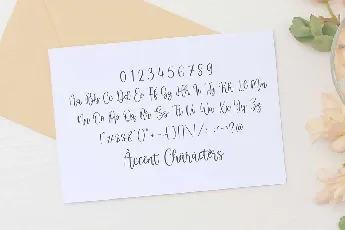 0123456789
Aa Bb Cc Dd Ee Ff Gg Hh Ii Jj Kk Ll Mm
Nn Oo Pp Qq Rr Ss Tt Uu Vv Xx Yy Zz
Accent Characters